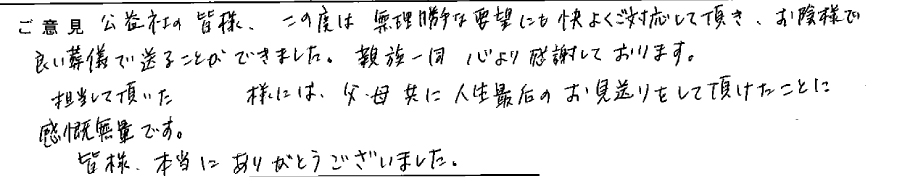 ご意見 公益社の皆様、この度は無理勝手な要望にも快よくご対応して頂き、お陰様で
良い葬儀で送ることができました。親族一同 心より感謝しております。
担当して頂いた 様には、父・母共に人生最后のお見送りをして頂けたことに
感慨無量です。
皆様、本当にありがとうございました。